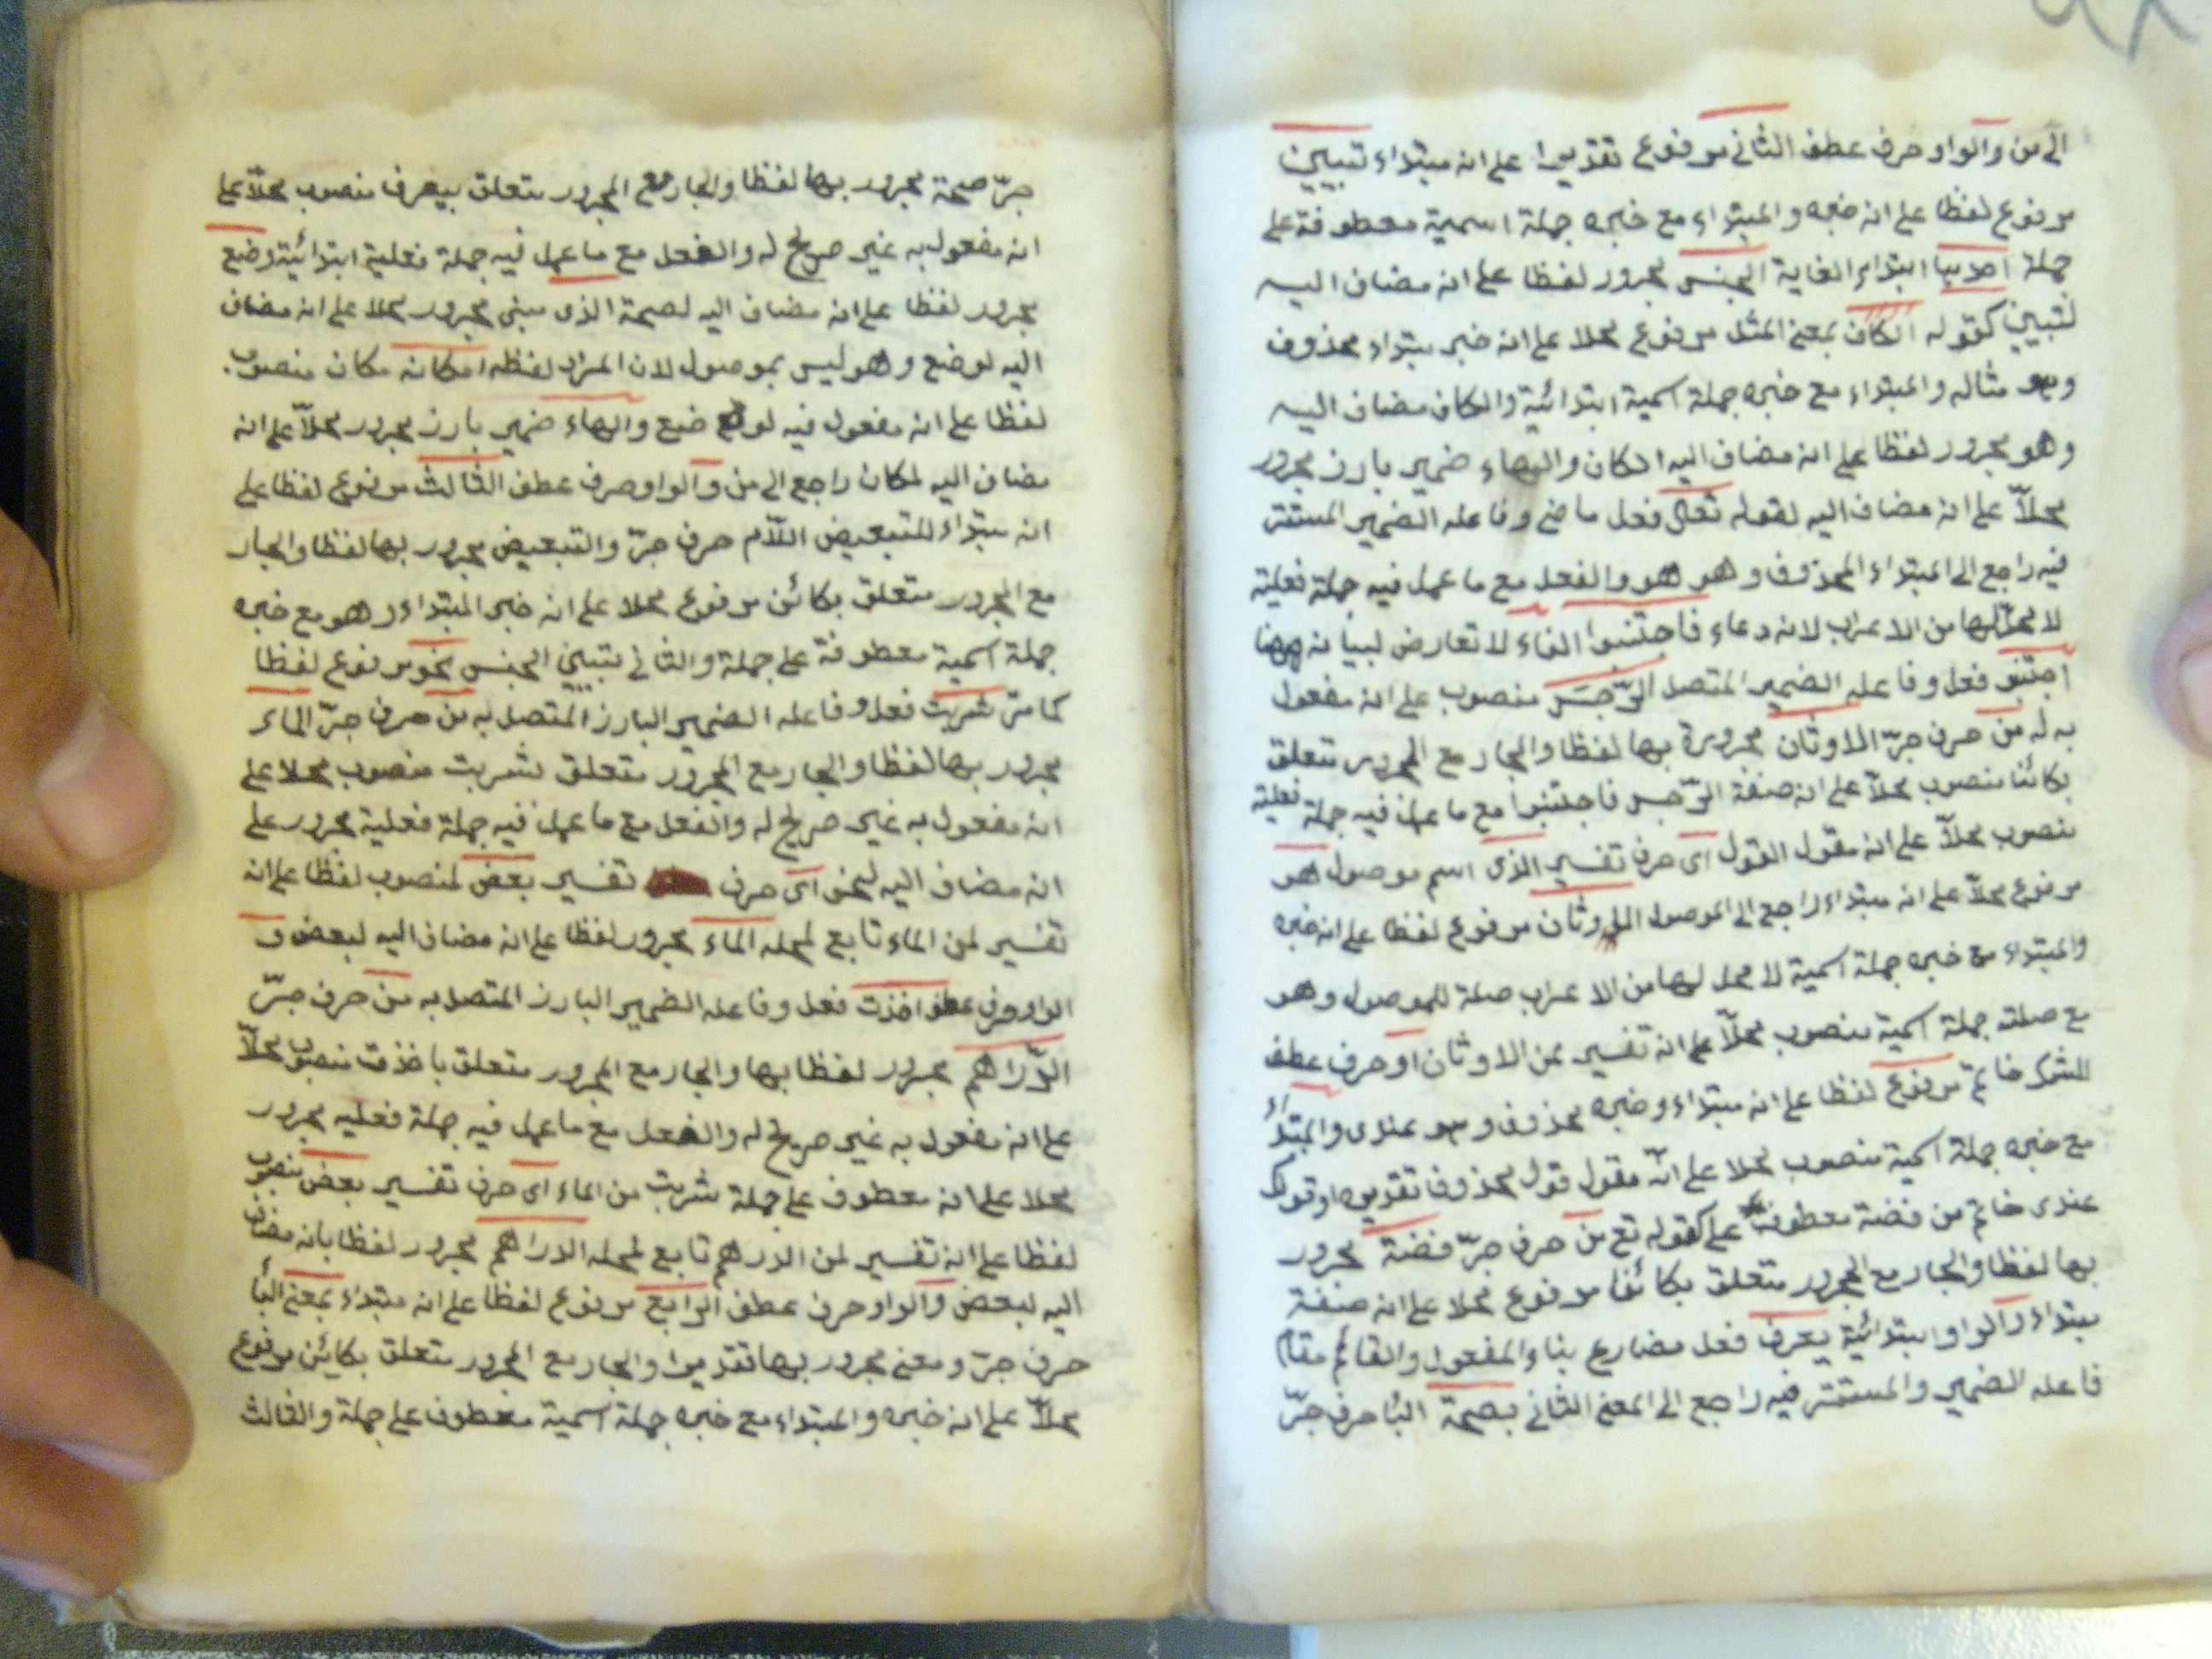 الى من والواو حرف عطف الثانى مرفوع تقديرا على انه مبتداء تبيين
مرفوع لفظا على انه خبره والمبتداء مع خبره جملة اسمية معطوفة على
جملة احديها ابتداء الغاية الجنس مجرور لفظا على انه مضاف اليه
لتبيين كقوله الكاف بمعنى المثل مرفوع محلا على انه خبر مبتداء محذوف
وهو مثاله والمبتداء مع خبره جملة اسمية ابتدائية والكاف مضاف اليه
وهو مجرور لفظا على انه مضاف اليه الكاف والهاء ضمير بارز مجرور
محلاّ على انه مضاف اليه لقوله تعالى فعل ماض وفاعله الضمير المستتر
فيه راجع الى المبتداء المحذوف وهو هو والفعل مع ما عمل فيه جملة فعلية
لا محلّ لها من الاعراب لانه دعاء فاجتنبوا الفاء لا تعارض لبيانه ههنا
اجتنبو فعل وفاعله الضمير المتصل الرّجس منصوب على انه مفعول
به له من حرف جرّ الاوثان مجرورة بها لفظا والجار مع المجرور متعلق
بكائنا منصوب محلاّ على انه صفة الرّجس فاجتنبوا مع ما عمل فيه جملة فعلية
منصوب محلاّ على انه مقول القول اى حرف تفسير الذى اسم موصول هو
مرفوع محلاّ على انه مبتداء راجع الى الموصول الاوثان مرفوع لفظا على انه خبره
والمبتداء مع خبره جملة اسمية لا محل لها من الاعراب صلة للموصول وهو
مع صلته جملة اسمية منصوب محلاّ على انه تفسير عن الاوثان او حرف عطف
خاتم مرفوع لفظا على انه مبتداء وخبره محذوف وهو عندى والمبتداء
مع خبره جملة اسمية منصوب محلا على انّه مقول قول محذوف تقديره او قولك
عندى خاتم من فضة معطوفة على كقوله تع من حرف جرّ فضة مجرور
بها لفظا والجار مع المجرور متعلق بكائنا مرفوع محلا على انه صفة
مبتداء والواو ابتدائية يعرف فعل مضارع بناء المفعول والقائم مقام
فاعله الضمير والمستتر فيه راجع الى المعنى الثانى بصحة البا حرف جرّ
جرّ صحة مجرور بها لفظا والجار مع المجرور متعلق بيعرف منصوب محلاّ على
انه مفعول به غير صريح له والفعل مع ما عمل فيه جملة فعلية ابتدائية وضع
مجرور لفظا على انه مضاف اليه لصحة الذى مبنى مجرور محلا على انه مضاف
اليه لوضع وهو ليس بموصول لان المراد لفظه مكانه مكان منصوب
لفظا على انه مفعول فيه لوضع والهاء ضمير بارز مجرور محلاّ على انه
مضاف اليه لمكان راجع الى من والواو حرف عطف الثالث مرفوع لفظا على
انه مبتداء للتبعيض اللاّم حرف جرّ والتبعيض مجرور بها لفظا والجار
مع المجرور متعلق بكائن مرفوع محلا على انه خبر المبتداء وهو مع خبره
جملة اسمية معطوفة على جملة والثانى تبيين الجنس نحو مرفوع لفظا
كما مرّ شربت فعل وفاعله الضمير البارز المتصل به من حرف جرّ الماء
مجرور بها لفظا والجار مع المجرور متعلق لشربت منصوب محلا على
انه مفعول به غير صريح له والفعل مع ما عمل فيه جملة فعلية مجرور على
انه مضاف اليه لنحو اى حرف تفسير بعض منصوب لفظا على انه
تفسير لمن الماء تابع لمحله الماء مجرور لفظا على انه مضاف اليه لبعض و
الواو حرف عطف اخذت فعل وفاعله الضمير البارز المتصل به من حرف جرّ
الدّراهم مجرور لفظا بها والجار مع المجرور متعلق باخذت منصوب محلاّ
على انه مفعول به غير صريح له والفعل مع ما عمل فيه جملة فعليه مجرور
محلا على انه معطوف على جملة شربت من الماء اى حرف تفسير بعض منصوب
لفظا على انه تفسير لمن الدرهم تابع لمحله الدراهم مجرور لفظا بانه مضاف
اليه لبعض والواو حرف عطف الرابع مرفوع لفظا على انه مبتداء بمعنى البا
حرف جرّ ومعنى مجرور بها تقديرا والجار مع المجرور متعلق بكائن مرفوع
محلاّ على انه خبره والمبتداء مع خبره جملة اسمية معطوف على جملة والثالث